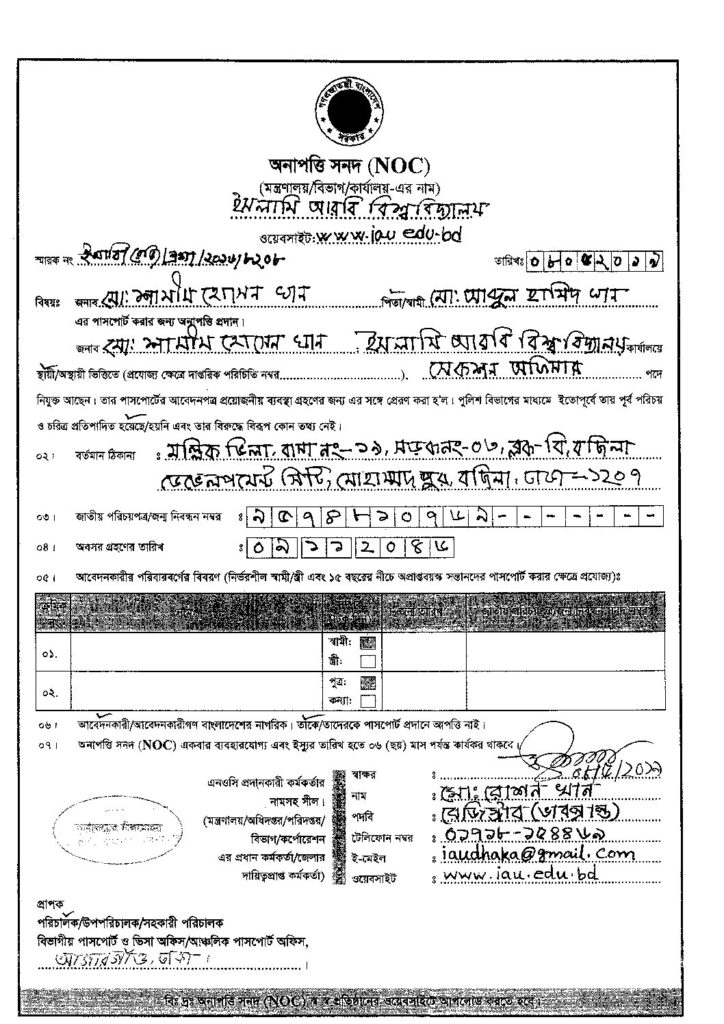 গণপ্রজাতন্ত্রী বাংলাদেশ
সরকার
অনাপত্তি সনদ (NOC)
(মন্ত্রণালয়/বিভাগ/কার্যালয়-এর নাম)
ইসলামি আরবি বিশ্ববিদ্যালয়
ওয়েবসাইট: www.iau.edu.bd
স্মারক নং তারিখঃ
বিষয়ঃ জনাব মো: শামীম হোসেন খান পিতা/স্বামী মো: আব্দুল হামিদ খান
এর পাসপোর্ট করার জন্য অনাপত্তি প্রদান।
জনাব মো: শামীম হোসেন খান , ইসলামি আরবি বিশ্ববিদ্যালয় কার্যালয়ে
স্থায়ী/অস্থায়ী ভিত্তিতে (প্রযোজ্য ক্ষেত্রে দাপ্তরিক পরিচিতি নম্বর ), সেকশন অফিসার পদে
নিযুক্ত আছেন। তার পাসপোর্টের আবেদনপত্র প্রয়োজনীয় ব্যবস্থা গ্রহণের জন্য এর সঙ্গে প্রেরণ করা হ'ল। পুলিশ বিভাগের মাধ্যমে ইতোপূর্বে তার পূর্ব পরিচয়
ও চরিত্র প্রতিপাদিত হয়েছে/হয়নি এবং তার বিরুদ্ধে বিরূপ কোন তথ্য নেই।
০২। বর্তমান ঠিকানা : মল্লিক ভিলা, বাসা নং-১৯, সড়ক নং-০৬, ব্লক-বি, বছিলা
ডেভেলপমেন্ট সিটি, মোহাম্মদপুর, বছিলা, ঢাকা-১২০৭
০৩। জাতীয় পরিচয়পত্র/জন্ম নিবন্ধন নম্বর :
০৪। অবসর গ্রহণের তারিখ :
০৫। আবেদনকারীর পরিবারবর্গের বিবরণ (নির্ভরশীল স্বামী/স্ত্রী এবং ১৫ বছরের নীচে অপ্রাপ্তবয়স্ক সন্তানদের পাসপোর্ট করার ক্ষেত্রে প্রযোজ্য)ঃ
ক্রমিক
০১. স্বামী:
স্ত্রী:
০২. পুত্র:
কন্যা:
০৬। আবেদনকারী/আবেদনকারীগণ বাংলাদেশের নাগরিক। তাঁকে/তাদেরকে পাসপোর্ট প্রদানে আপত্তি নাই।
০৭। অনাপত্তি সনদ (NOC) একবার ব্যবহারযোগ্য এবং ইস্যুর তারিখ হতে ০৬ (ছয়) মাস পর্যন্ত কার্যকর থাকবে।
এনওসি প্রদানকারী কর্মকর্তার
নামসহ সীল।
(মন্ত্রণালয়/অধিদপ্তর/পরিদপ্তর/
বিভাগ/কর্পোরেশন
এর প্রধান কর্মকর্তা/জেলার
দায়িত্বপ্রাপ্ত কর্মকর্তা)
স্বাক্ষর :
নাম : মো: রোশন খান
পদবি : রেজিস্ট্রার (ভারপ্রাপ্ত)
টেলিফোন নম্বর :
ই-মেইল : iaudhaka@gmail.com
ওয়েবসাইট : www.iau.edu.bd
প্রাপক
পরিচালক/উপপরিচালক/সহকারী পরিচালক
বিভাগীয় পাসপোর্ট ও ভিসা অফিস/আঞ্চলিক পাসপোর্ট অফিস,
আগারগাঁও, ঢাকা।
বিঃ দ্রঃ অনাপত্তি সনদ (NOC) স্ব স্ব প্রতিষ্ঠানের ওয়েবসাইটে আপলোড করতে হবে।